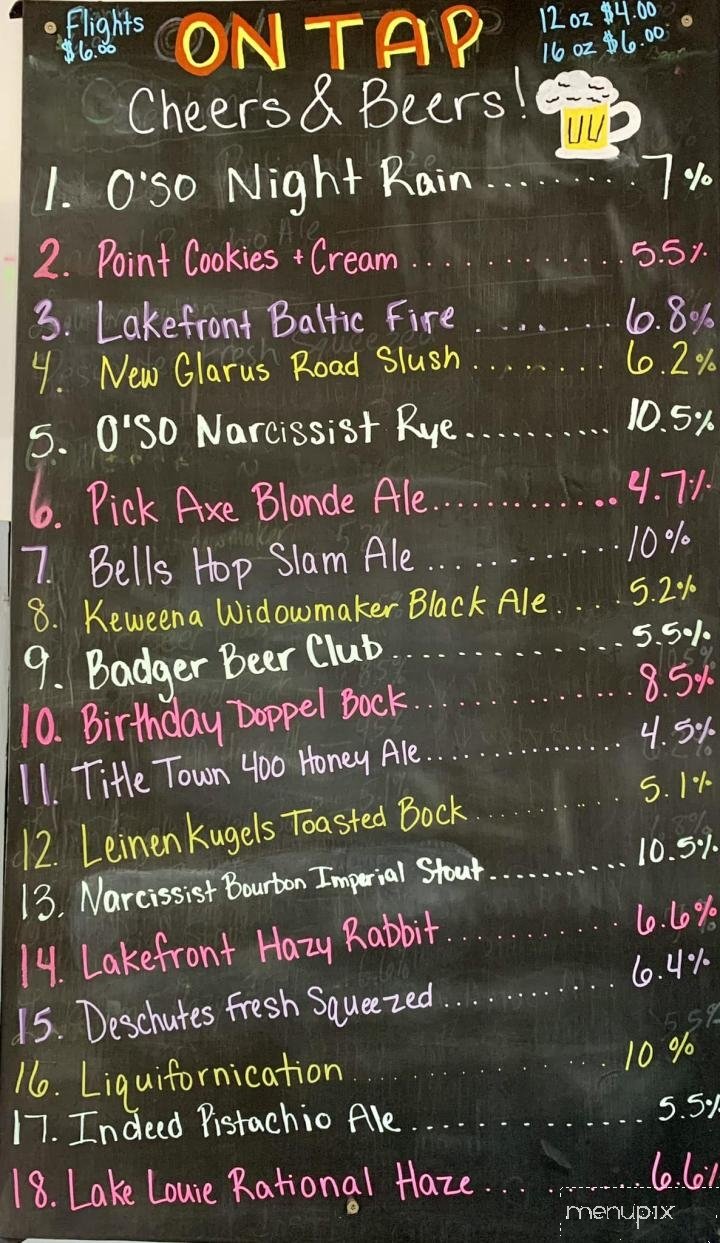 Flights
$6.00
ON TAP
12 oz $4.00
16 oz $6.00
Cheers & Beers!
1. O'so Night Rain ......... 7%
2. Point Cookies + Cream ............. 5.5%
3. Lakefront Baltic Fire ......... 6.8%
4. New Glarus Road Slush ......... 6.2%
5. O'SO Narcissist Rye........... 10.5%
6. Pick Axe Blonde Ale............... 4.7%
7. Bells Hop Slam Ale ............... 10%
8. Keweena Widowmaker Black Ale .... 5.2%
9. Badger Beer Club ................ 5.5%
10. Birthday Doppel Bock............... 8.5%
11. Title Town 400 Honey Ale................ 4.5%
12. Leinenkugels Toasted Bock ........... 5.1%
13. Narcissist Bourbon Imperial Stout........... 10.5%
14. Lakefront Hazy Rabbit ............ 6.6%
15. Deschutes Fresh Squeezed ............ 6.4%
16. Liquifornication ............... 10%
17. Indeed Pistachio Ale ............... 5.5%
18. Lake Louie Rational Haze ......... 6.6%
menupix